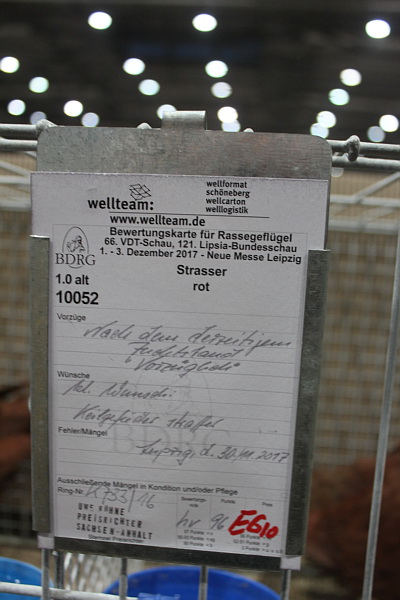 wellteam:
wellformat
schöneberg
wellcarton
welllogistik
www.wellteam.de
Bewertungskarte für Rassegeflügel
66. VDT-Schau, 121. Lipsia-Bundesschau
1. - 3. Dezember 2017 - Neue Messe Leipzig
BDRG
1.0 alt
Strasser
10052
rot
Vorzüge
Nach dem derzeitigen
Zuchtstand
Vorzüglich
Wünsche
kl. Wunsch:
Keilfeder straffer
Fehler/Mängel
Leipzig, d. 30.11.2017
BDRG
Ausschließende Mängel in Kondition und/oder Pflege
Ring-Nr. K733/16
Bewertungsnote Punkte Preis
hv 96 E610
UWE KÜHNE
PREISRICHTER
SACHSEN-ANHALT
Stempel Preisrichter